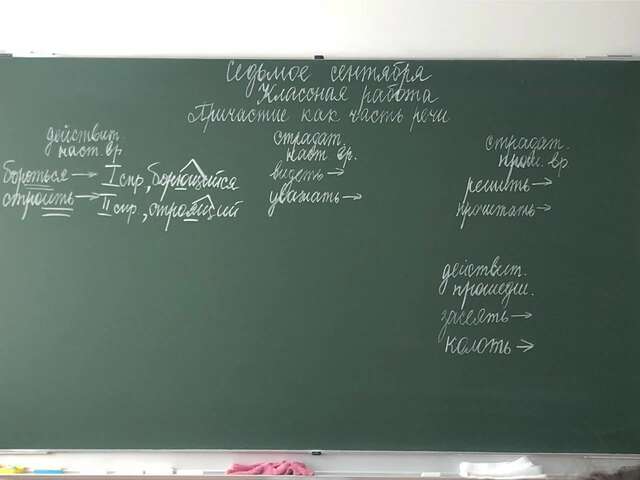 Седьмое сентября
Классная работа
Причастие как часть речи
действит.
наст. вр.
бороться → I спр., борющийся
строить → II спр., строящий
страдат.
наст. вр.
видеть →
уважать →
страдат.
прош. вр
решить →
прочитать →
действит.
прошедш.
засеять →
колоть →